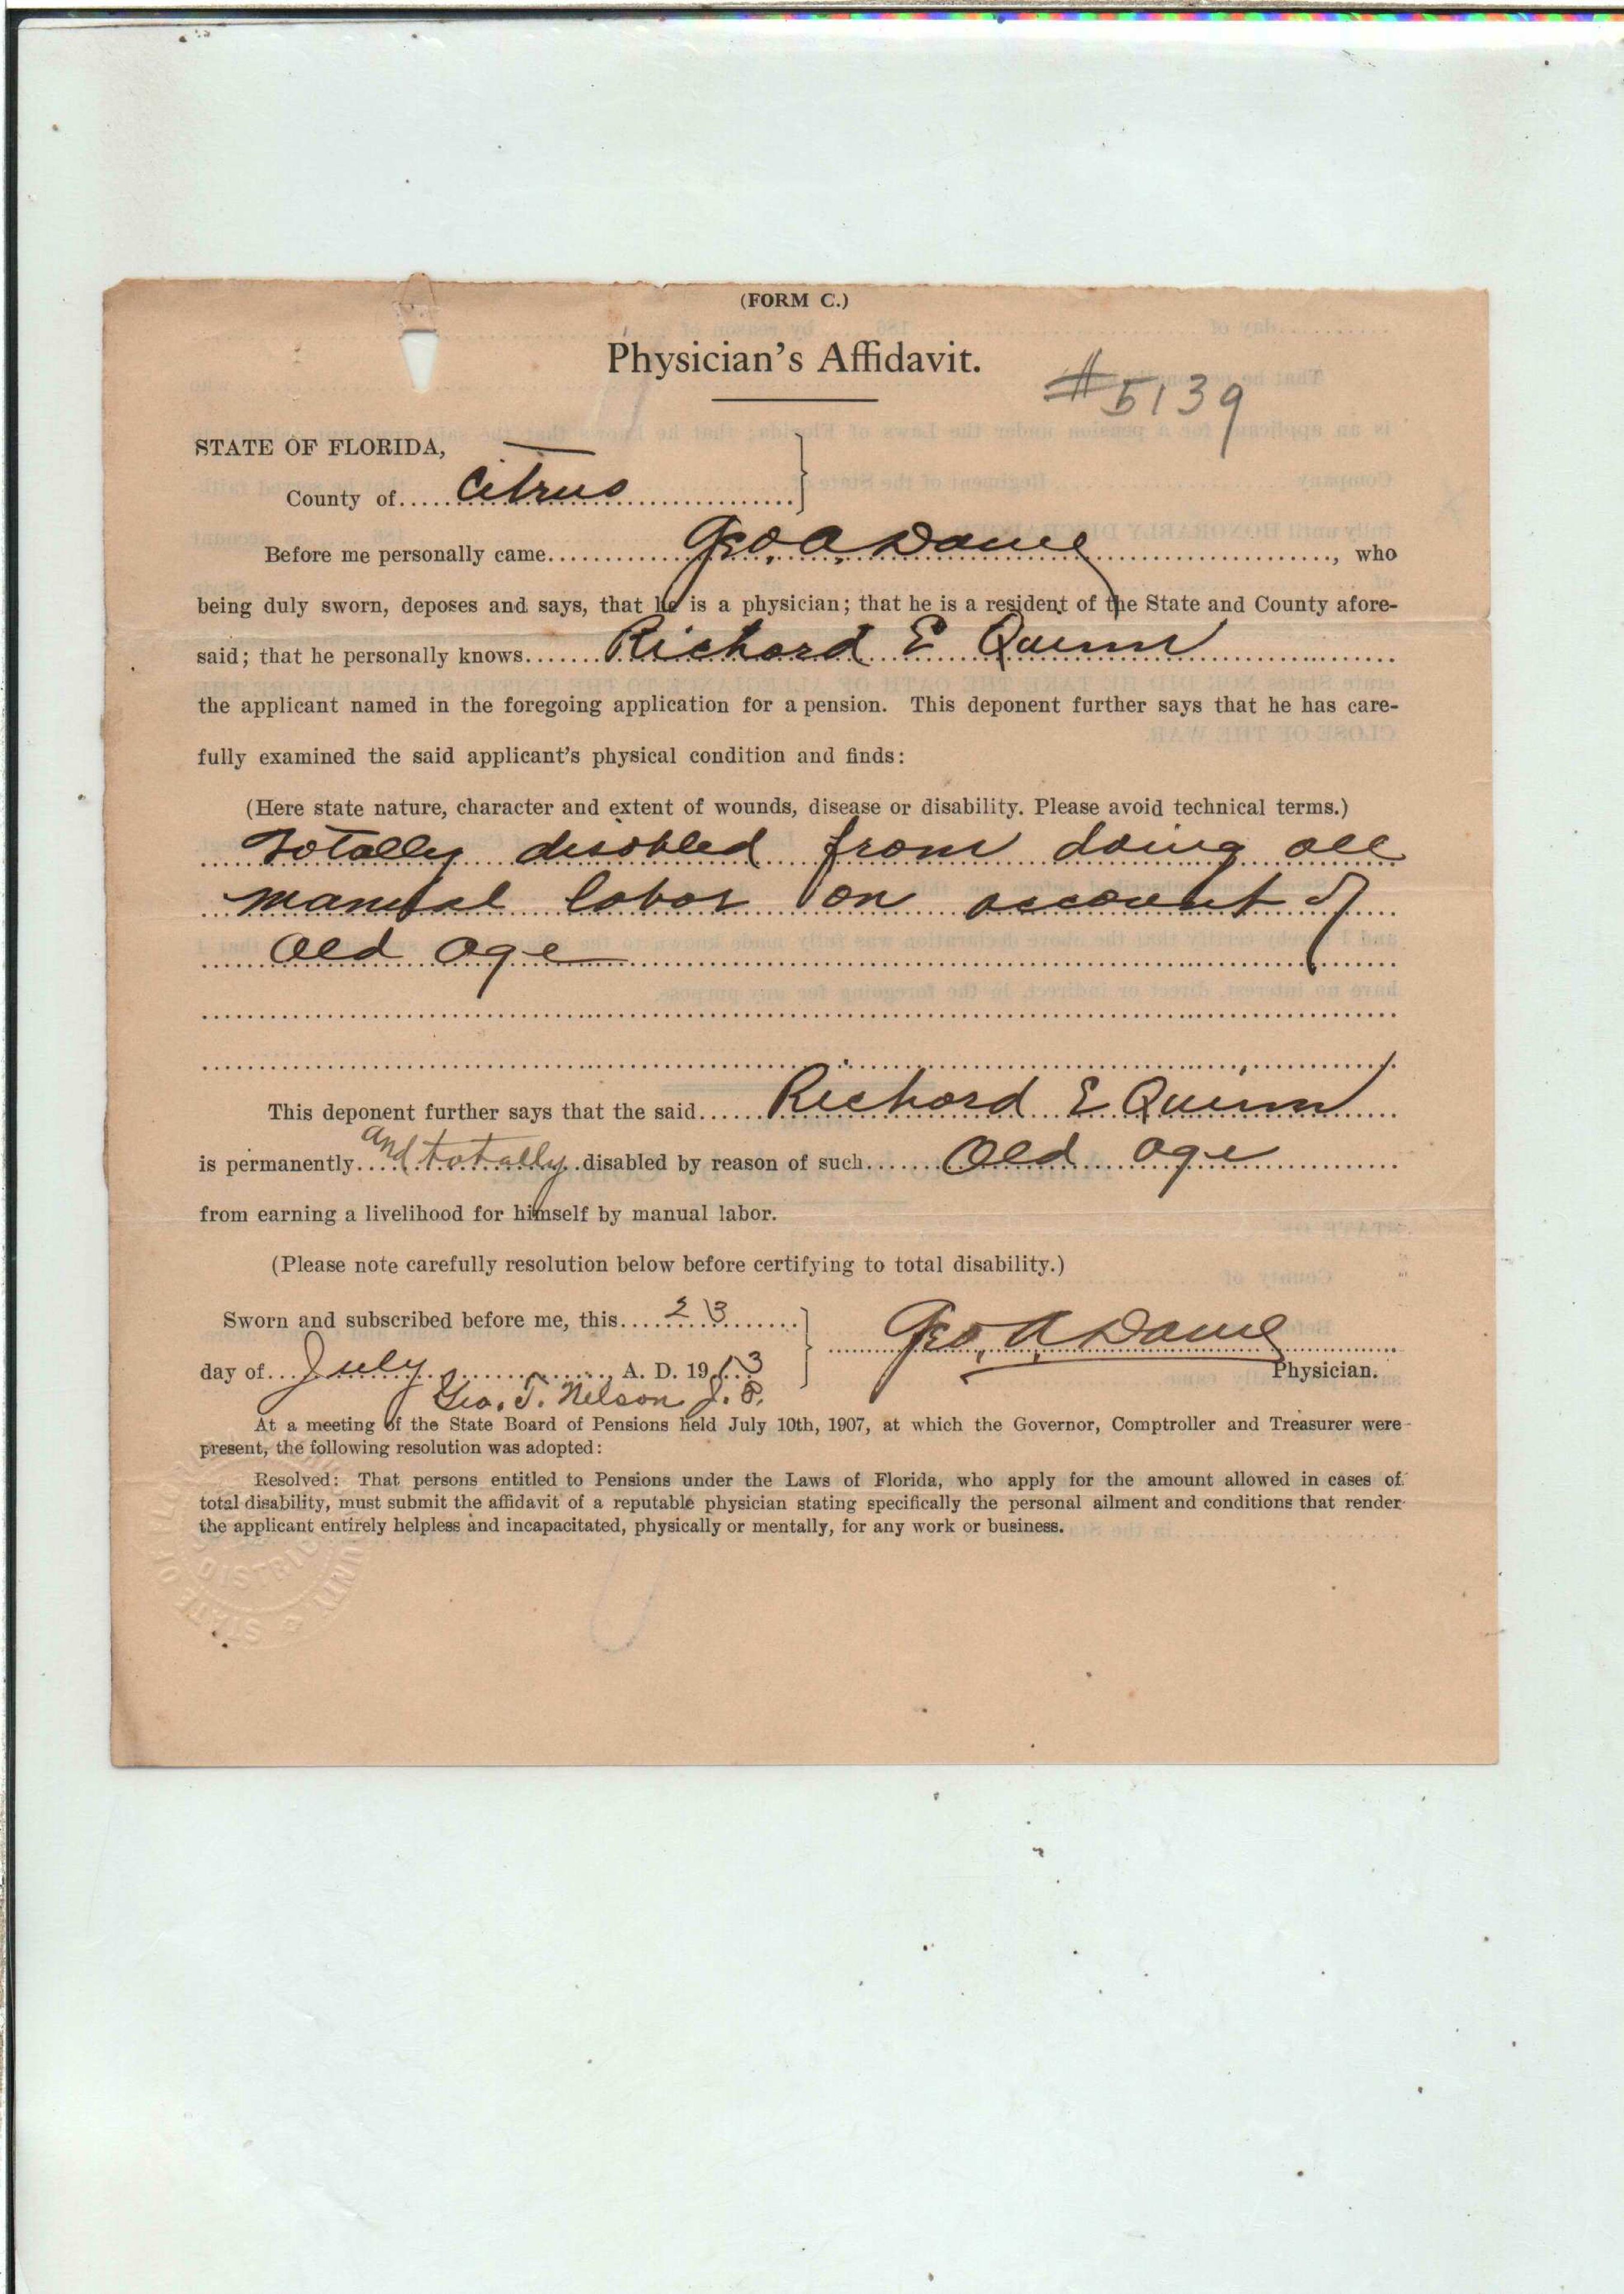 (FORM C.)
Physician's Affidavit.
#5139
STATE OF FLORIDA,
County of Citrus
Before me personally came Geo. A. Dame, who
being duly sworn, deposes and says, that he is a physician; that he is a resident of the State and County afore-
said; that he personally knows Richard E Quinn
the applicant named in the foregoing application for a pension. This deponent further says that he has care-
fully examined the said applicant's physical condition and finds:
(Here state nature, character and extent of wounds, disease or disability. Please avoid technical terms.)
Totally disabled from doing all
manual labor on account of
Old age
This deponent further says that the said Richard E Quinn
is permanently and totally disabled by reason of such Old age
from earning a livelihood for himself by manual labor.
(Please note carefully resolution below before certifying to total disability.)
Sworn and subscribed before me, this 23
day of July A. D. 1913
Geo. A. Dame
Physician.
Geo. T. Nelson J. P.
At a meeting of the State Board of Pensions held July 10th, 1907, at which the Governor, Comptroller and Treasurer were
present, the following resolution was adopted:
Resolved: That persons entitled to Pensions under the Laws of Florida, who apply for the amount allowed in cases of
total disability, must submit the affidavit of a reputable physician stating specifically the personal ailment and conditions that render
the applicant entirely helpless and incapacitated, physically or mentally, for any work or business.
DISTRIC
STATE OF